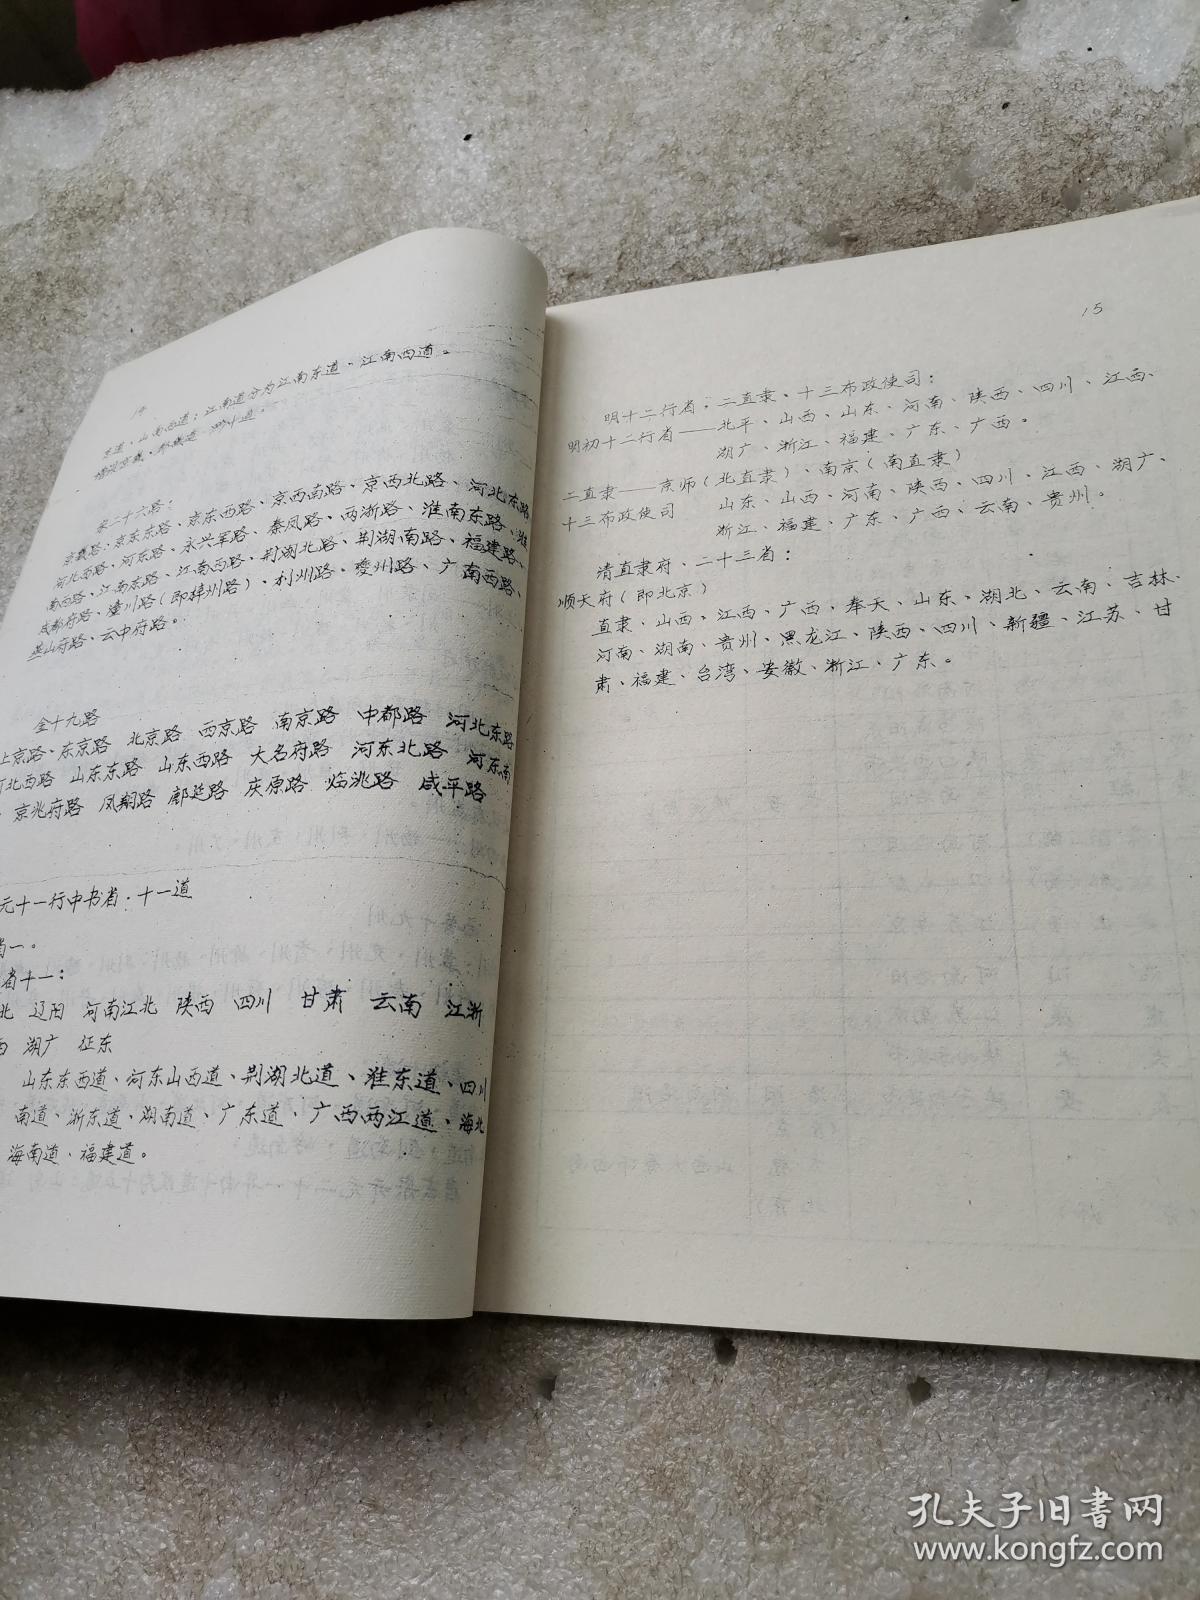 14
东道、山南西道；江南道分为江南东道、江南西道。
增设京畿、都畿道、黔中道。
宋二十六路：
京畿路：京东东路、京东西路、京西南路、京西北路、河北东路
河北西路、河东路、永兴军路、秦凤路、两浙路、淮南东路、淮
南西路、江南东路、江南西路、荆湖北路、荆湖南路、福建路、
成都府路、潼川路（即梓州路）、利州路、夔州路、广南西路、
燕山府路、云中府路。
金十九路
上京路、东京路 北京路 西京路 南京路 中都路 河北东路
河北西路 山东东路 山东西路 大名府路 河东北路 河东南
京兆府路 凤翔路 鄜延路 庆原路 临洮路 咸平路
元十一行中书省、十一道
省一。
省十一：
北 辽阳 河南江北 陕西 四川 甘肃 云南 江浙
西 湖广 征东
山东东西道、河东山西道、荆湖北道、淮东道、四川
南道、浙东道、湖南道、广东道、广西两江道、海北
海南道、福建道。
15
明十二行省，二直隶、十三布政使司：
明初十二行省——北平、山西、山东、河南、陕西、四川、江西、
湖广、浙江、福建、广东、广西。
二直隶——京师（北直隶）、南京（南直隶）
十三布政使司 山东、山西、河南、陕西、四川、江西、湖广、
浙江、福建、广东、广西、云南、贵州。
清直隶府、二十三省：
顺天府（即北京）
直隶、山西、江西、广西、奉天、山东、湖北、云南、吉林、
河南、湖南、贵州、黑龙江、陕西、四川、新疆、江苏、甘
肃、福建、台湾、安徽、浙江、广东。
孔夫子旧书网
www.kongfz.com